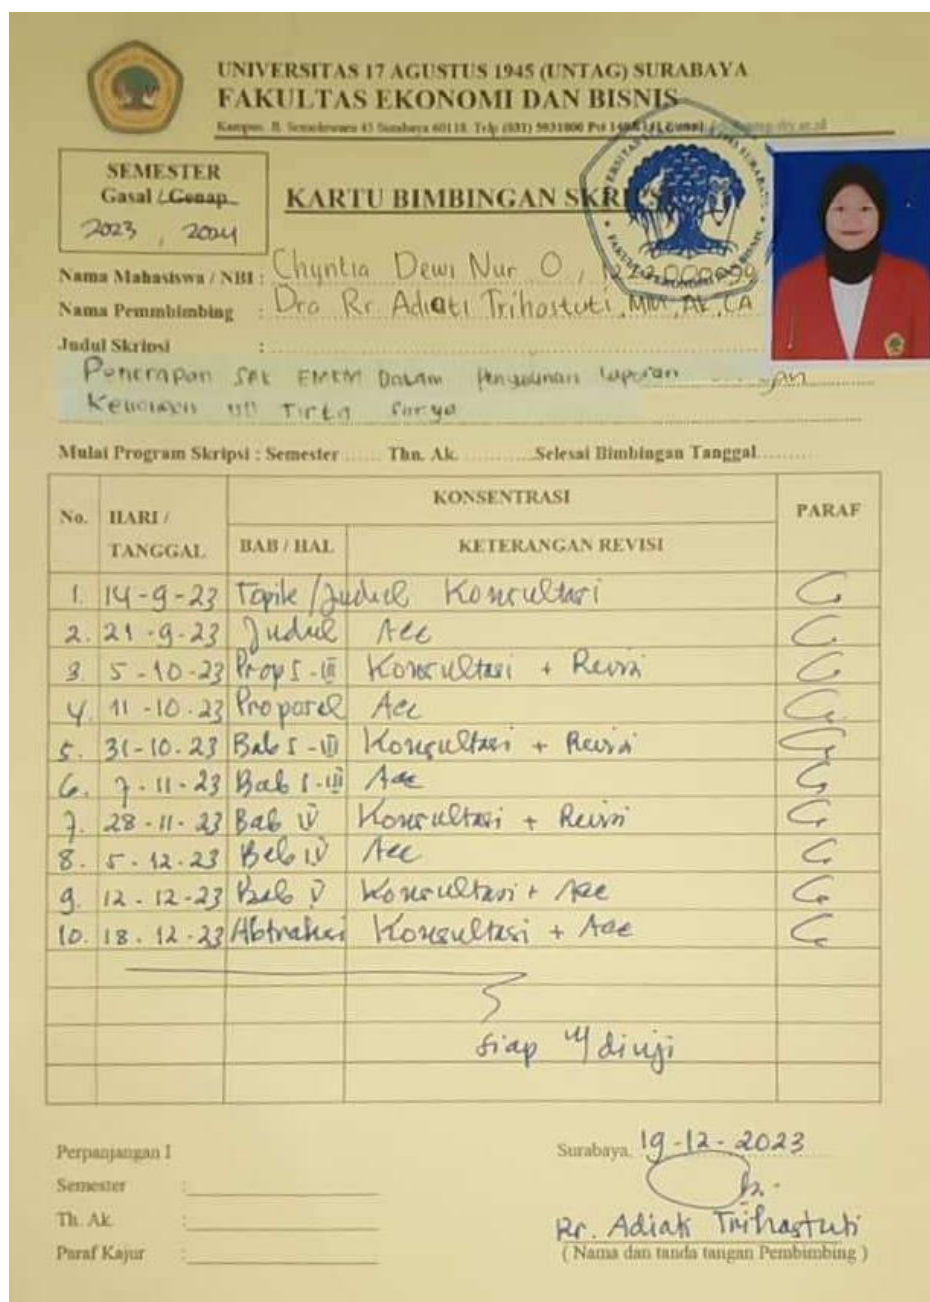 UNIVERSITAS 17 AGUSTUS 1945 (UNTAG) SURABAYA
FAKULTAS EKONOMI DAN BISNIS
Kampus. Jl. Semolowaru 45 Surabaya 60118. Telp (031) 5931800
SEMESTER
Gasal / Genap
2023 , 2024
KARTU BIMBINGAN
Nama Mahasiswa / NBI : Chyntia Dewi Nur O ,
Nama Pemmbimbing : Dra Rr Adiati Trihastuti, MM, AK, CA
Judul Skripsi :
Penerapan SAK EMKM Dalam Penyusunan Laporan
Keuangan UD Tirta Surya
Mulai Program Skripsi : Semester ...... Thn. Ak. ..........Selesai Bimbingan Tanggal..........
No. HARI / TANGGAL KONSENTRASI PARAF
BAB / HAL KETERANGAN REVISI
1. 14-9-23 Topik/Judul Konsultasi
2. 21-9-23 Judul Acc
3. 5-10-23 Prop I-III Konsultasi + Revisi
4. 11-10-23 Proposal Acc
5. 31-10-23 Bab I-III Konsultasi + Revisi
6. 7-11-23 Bab I-III Acc
7. 28-11-23 Bab IV Konsultasi + Revisi
8. 5-12-23 Bab IV Acc
9. 12-12-23 Bab V Konsultasi + Acc
10. 18-12-23 Abtraksi Konsultasi + Acc
siap u/ diuji
Perpanjangan I
Semester :
Th. Ak. :
Paraf Kajur :
Surabaya, 19-12-2023
Rr. Adiati Trihastuti
( Nama dan tanda tangan Pembimbing )